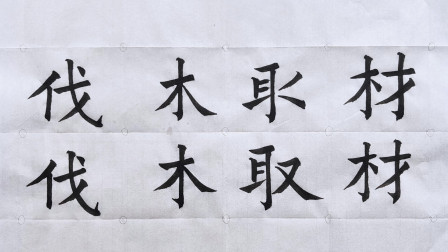 伐木取材
伐木取材